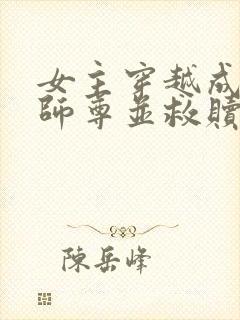 女主穿越成
師尊並救贖
陳岳峰